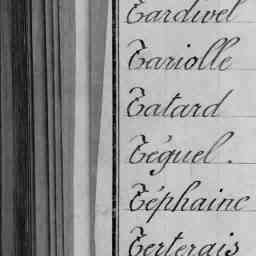 Tardivel
Tariolle
Tatard
Téguel.
Téphainc
Terterais